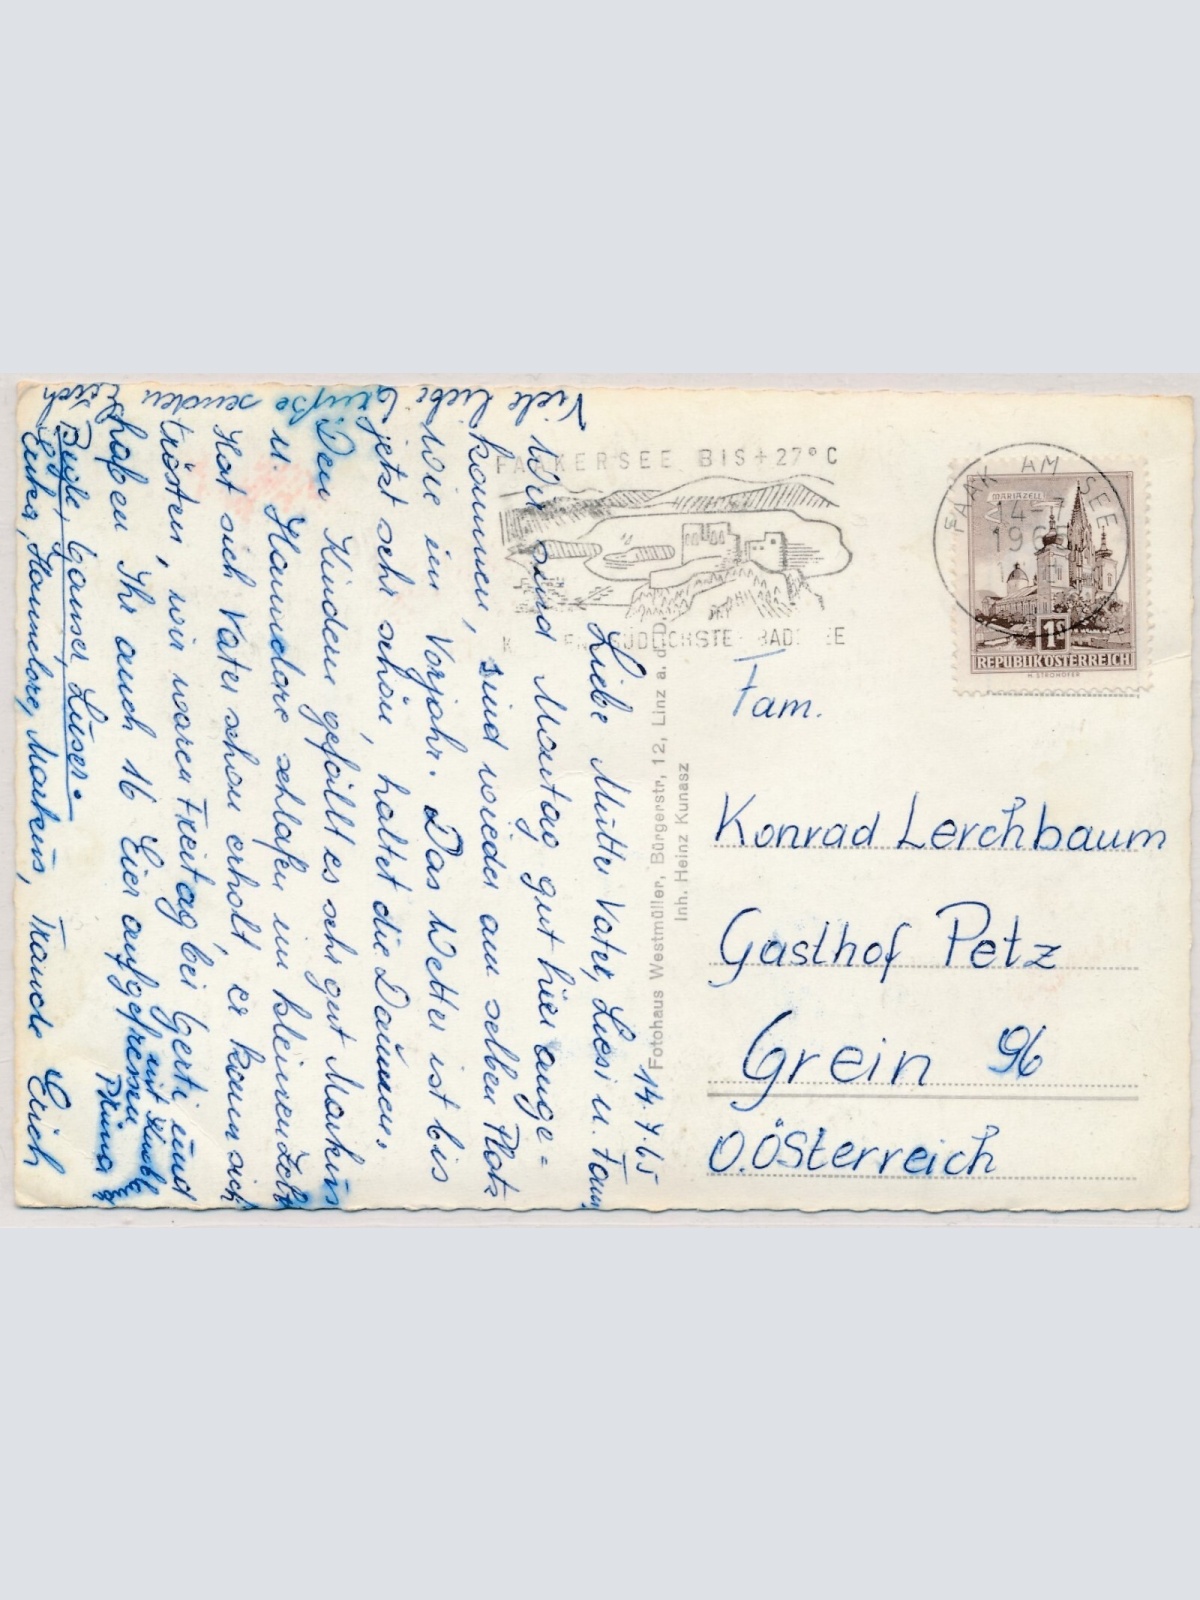 14.7.65
Liebe Mutter Vater, Liesi u. Fam.
Wir sind Montag gut hier ange=
kommen, sind wieder am selben Platz
wie im Vorjahr. Das Wetter ist bis
jetzt sehr schön, haltet die Daumen.
Den Kindern gefällt es sehr gut Markus
u. Hannelore schlafen im kleinen Zelt
Hat sich Vater schon erholt, er kann sich
trösten, wir waren Freitag bei Gerti und
haben Ihr auch 16 Eier aufgefressen
mit
Bussi,
Erika, Hannelore, Markus, Erich
Viele liebe Grüße senden Euch
FAAKERSEE BIS +27° C
BADESEE
FAAK AM SEE
14-7
196
MARIAZELL
1S
REPUBLIK ÖSTERREICH
H. STROHOFER
Fotohaus Westmüller, Bürgerstr, 12, Linz a. d. D.
Inh. Heinz Kunasz
Fam.
Konrad Lerchbaum
Gasthof Petz
Grein 96
O.Österreich